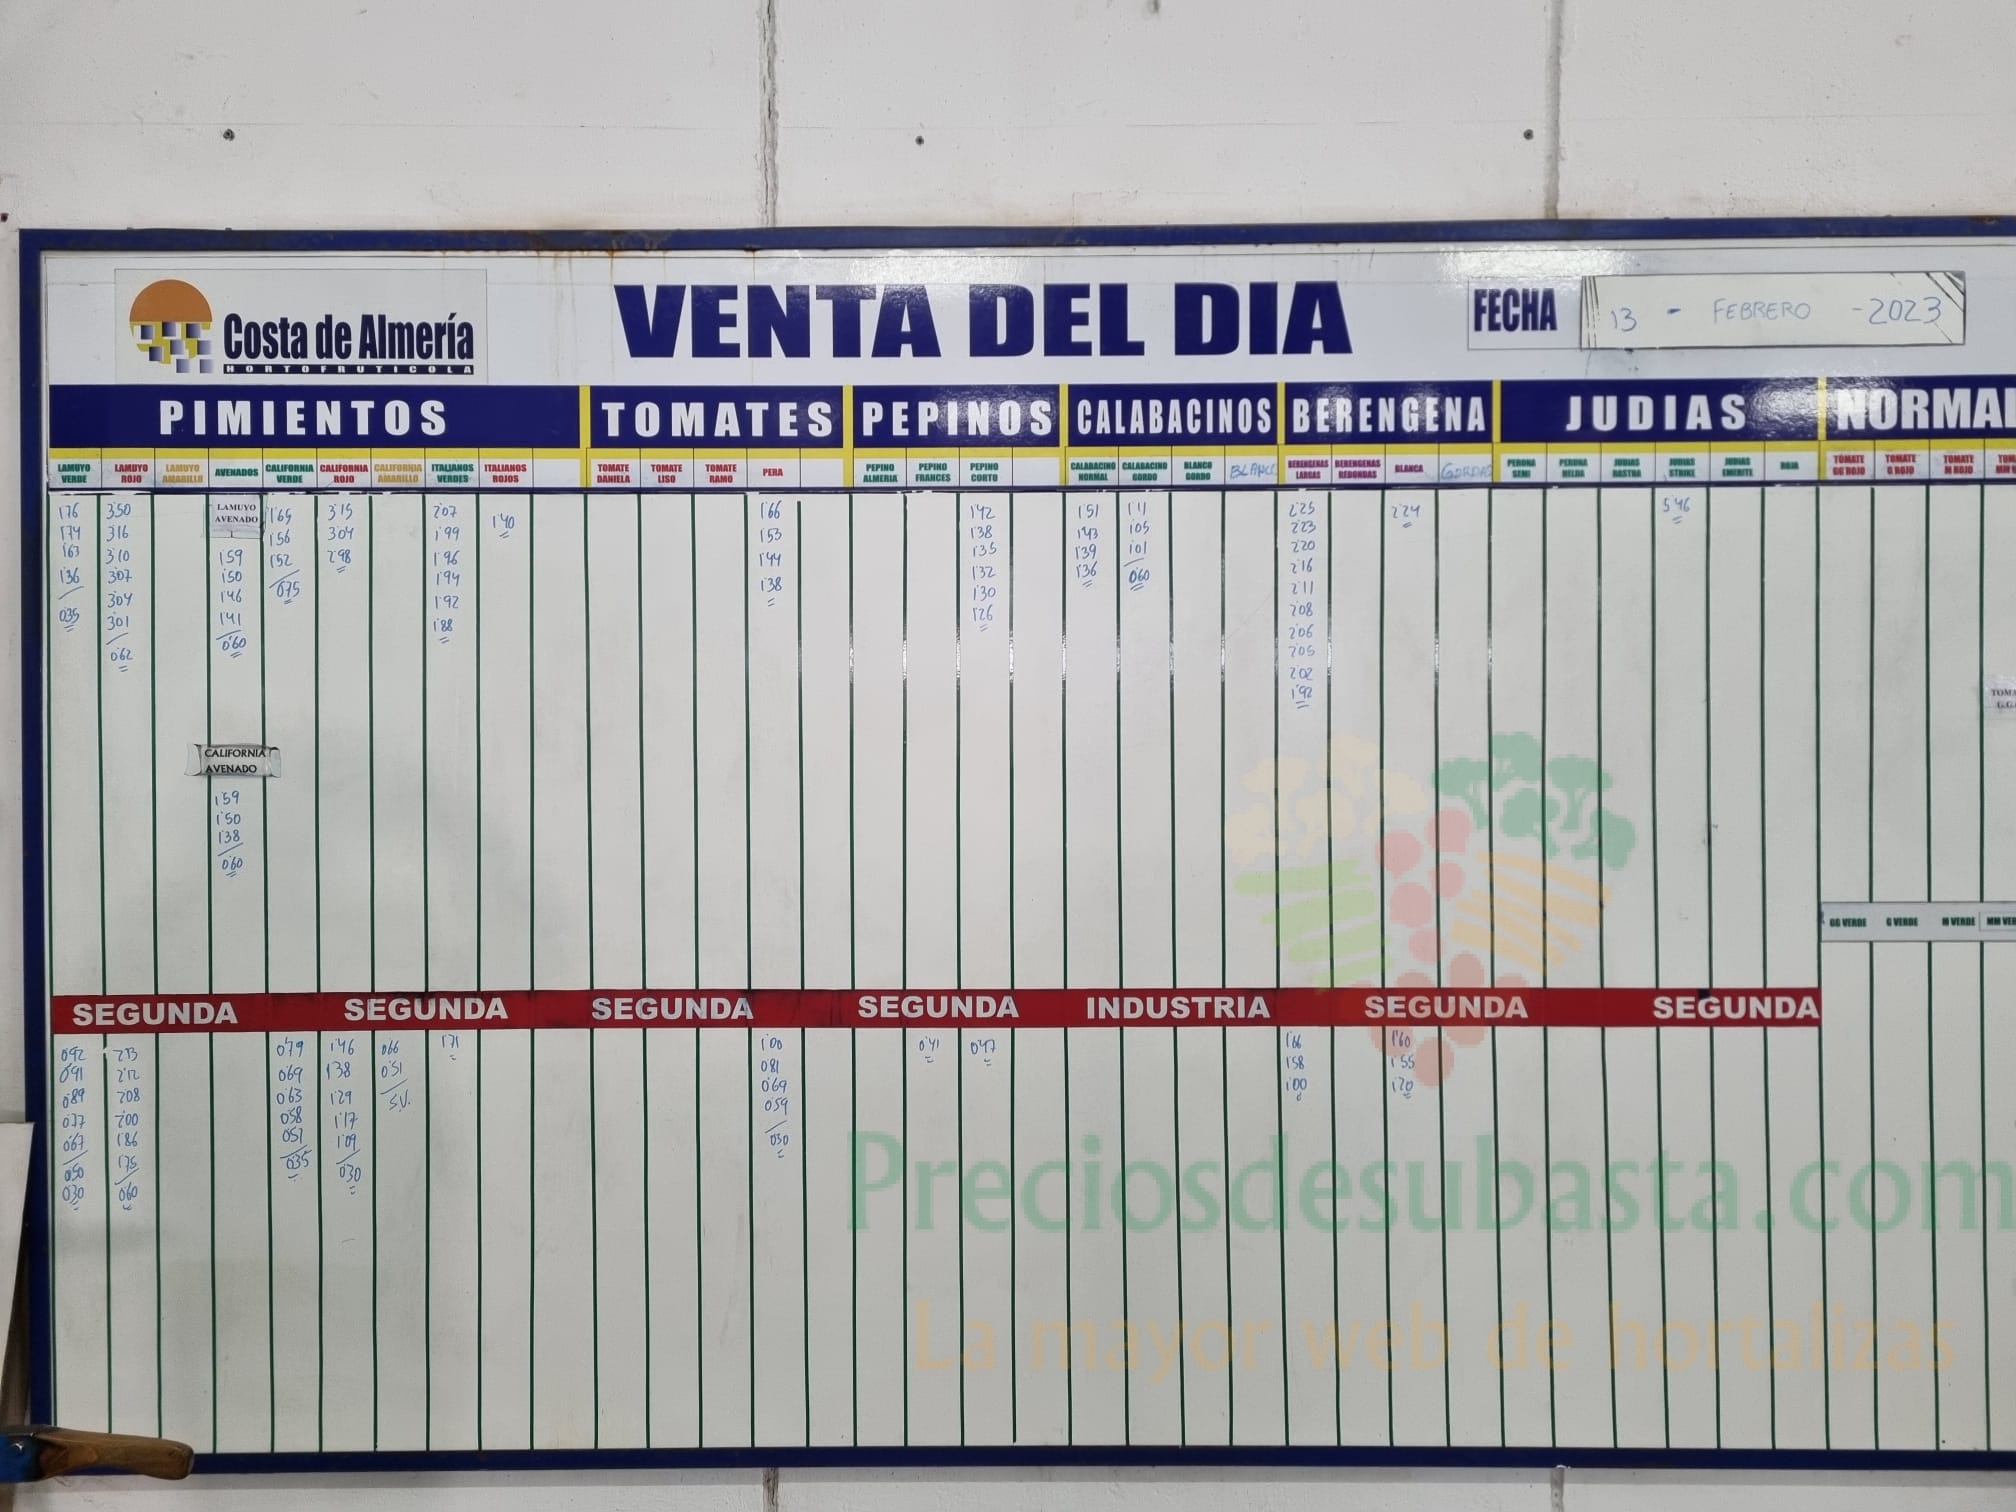 Costa de Almería
HORTOFRUTICOLA
VENTA DEL DIA
FECHA 13 - FEBRERO - 2023
PIMIENTOS TOMATES PEPINOS CALABACINOS BERENGENA JUDIAS
LAMUYO VERDE
LAMUYO ROJO
LAMUYO AMARILLO
AVENADOS
CALIFORNIA VERDE
CALIFORNIA ROJO
CALIFORNIA AMARILLO
ITALIANOS VERDES
ITALIANOS ROJOS
TOMATE DANIELA
TOMATE LISO
TOMATE RAMO
PERA
PEPINO ALMERIA
PEPINO FRANCES
PEPINO CORTO
CALABACINO NORMAL
CALABACINO GORDO
BLANCO GORDO
BERENGENAS LARGAS
BERENGENAS REDONDAS
BLANCA
GORDAS
PERONA SEMI
PERONA NELDA
JUDIAS RASTRA
JUDIAS STRIKE
JUDIAS EMERITE
ROJA
TOMATE GG ROJO
TOMATE G ROJO
TOMATE M ROJO
1'76
1'74
1'63
1'36
0'35
3'50
3'16
3'10
3'07
3'04
3'01
0'62
LAMUYO
AVENADO
1'59
1'50
1'46
1'41
0'60
1'65
1'56
1'52
0'75
3'15
3'04
2'98
2'07
1'99
1'96
1'94
1'92
1'88
1'40
1'66
1'53
1'44
1'38
1'42
1'38
1'35
1'32
1'30
1'26
1'51
1'43
1'39
1'36
1'11
1'05
1'01
0'60
2'25
2'23
2'20
2'16
2'11
2'08
2'06
2'05
2'02
1'92
2'24
5'46
CALIFORNIA
AVENADO
1'59
1'50
1'38
0'60
GG VERDE G VERDE M VERDE
SEGUNDA SEGUNDA SEGUNDA SEGUNDA INDUSTRIA SEGUNDA SEGUNDA
0'92
0'91
0'89
0'77
0'67
0'50
0'30
2'12
2'08
2'00
1'86
1'75
0'60
0'79
0'69
0'63
0'58
0'51
0'35
1'46
1'38
1'29
1'17
1'09
0'30
0'66
0'51
S.V.
1'71
1'00
0'81
0'69
0'59
0'30
0'41
0'47
1'66
1'58
1'00
1'60
1'55
1'20
Preciosdesubasta.com
La mayor web de hortalizas